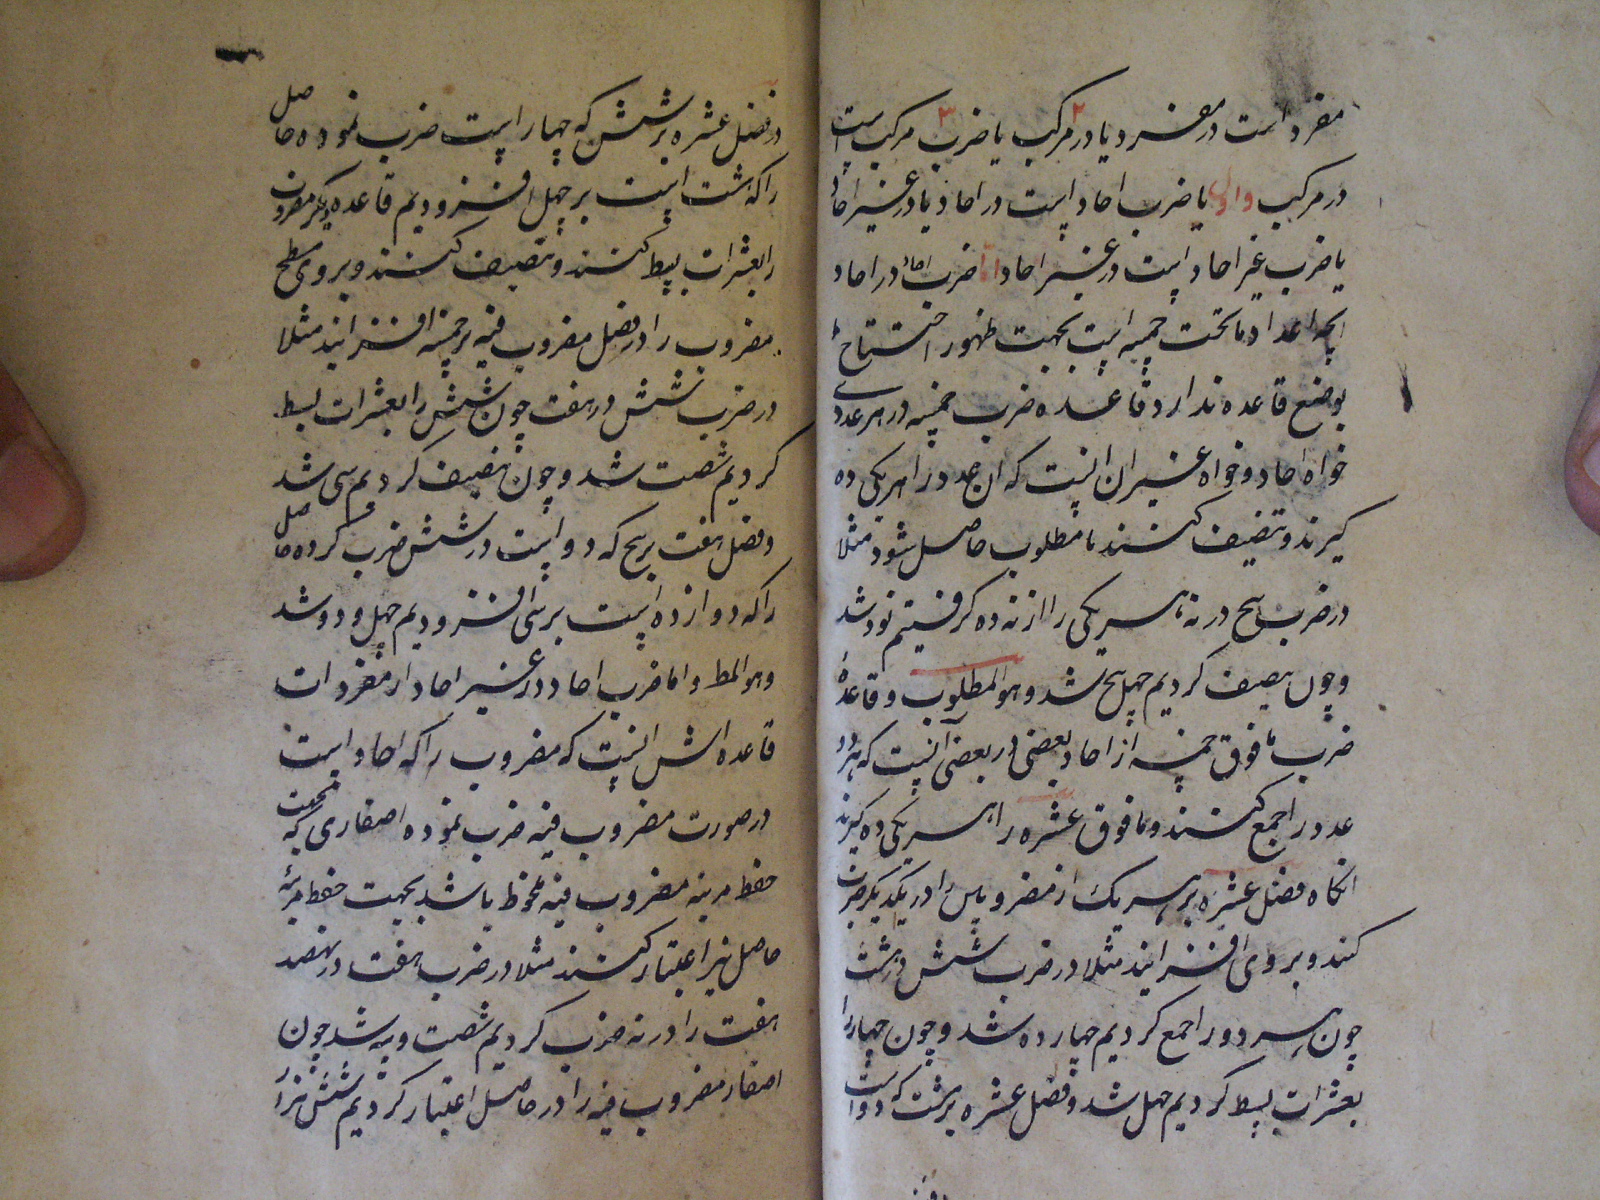 مفرد است در مفرد یا در مرکب یا ضرب مرکب است
در مرکب و اول یا ضرب احاد است در احاد یا در غیر احاد
یا ضرب غیر احاد است در غیر احاد اما ضرب احاد در احاد
انچه اعداد ما تحت خمسه است بجهت ظهور احتیاج
بوضع قاعده ندارد و قاعده ضرب خمسه در هر عددی
خواه احاد و خواه غیر ان انست که ان عدد را هر یکی ده
کیرند و تنصیف کنند تا مطلوب حاصل شود مثلا
در ضرب پنج در نه هر یکی را از نه ده کرفتیم نود شد
و چون تنصیف کردیم چهل پنج شد و هو المطلوب و قاعدهٔ
ضرب ما فوق خمسه از احاد بعضی در بعضی آنست که هر دو
عدد را جمع کنند و ما فوق عشره را هر یکی ده کیرند
انکاه فضل عشره بر هر یک از مضروبین را در یکدیکر ضرب
کنند و بر وی افزایند مثلا در ضرب شش در هشت
چون هر دو را جمع کردیم چهارده شد و چون چهار را
بعشرات بسط کردیم چهل شد و فضل عشره بر هشت که دو است
در فضل عشره بر شش که چهار است ضرب نموده حاصل
را که هشت است بر چهل افزودیم قاعده دیکر مضروب
را بعشرات بسط کنند و تنصیف کنند و بر وی مسطح
مضروب را در فضل مضروب فیه بر خمسه افزایند مثلا
در ضرب شش در هفت چون شش را بعشرات بسط
کردیم شصت شد و چون تنصیف کردیم سی شد
و فضل هفت بر پنج که دو است در شش ضرب کرده حاصل
را که دوازده است بر سی افزودیم چهل و دو شد
و هو المط و اما ضرب احاد در غیر احاد از مفردات
قاعده اش انست که مضروب را که احاد است
در صورت مضروب فیه ضرب نموده اصفاری که بجهت
حفظ مرتبه مضروب فیه ملحوظ باشد بجهت حفظ مرتبهٔ
حاصل نیز اعتبار کنند مثلا در ضرب هفت در نهصد
هفت را در نه ضرب کردیم شصت و سه شد چون
اصفار مضروب فیه را در حاصل اعتبار کردیم شش هزار